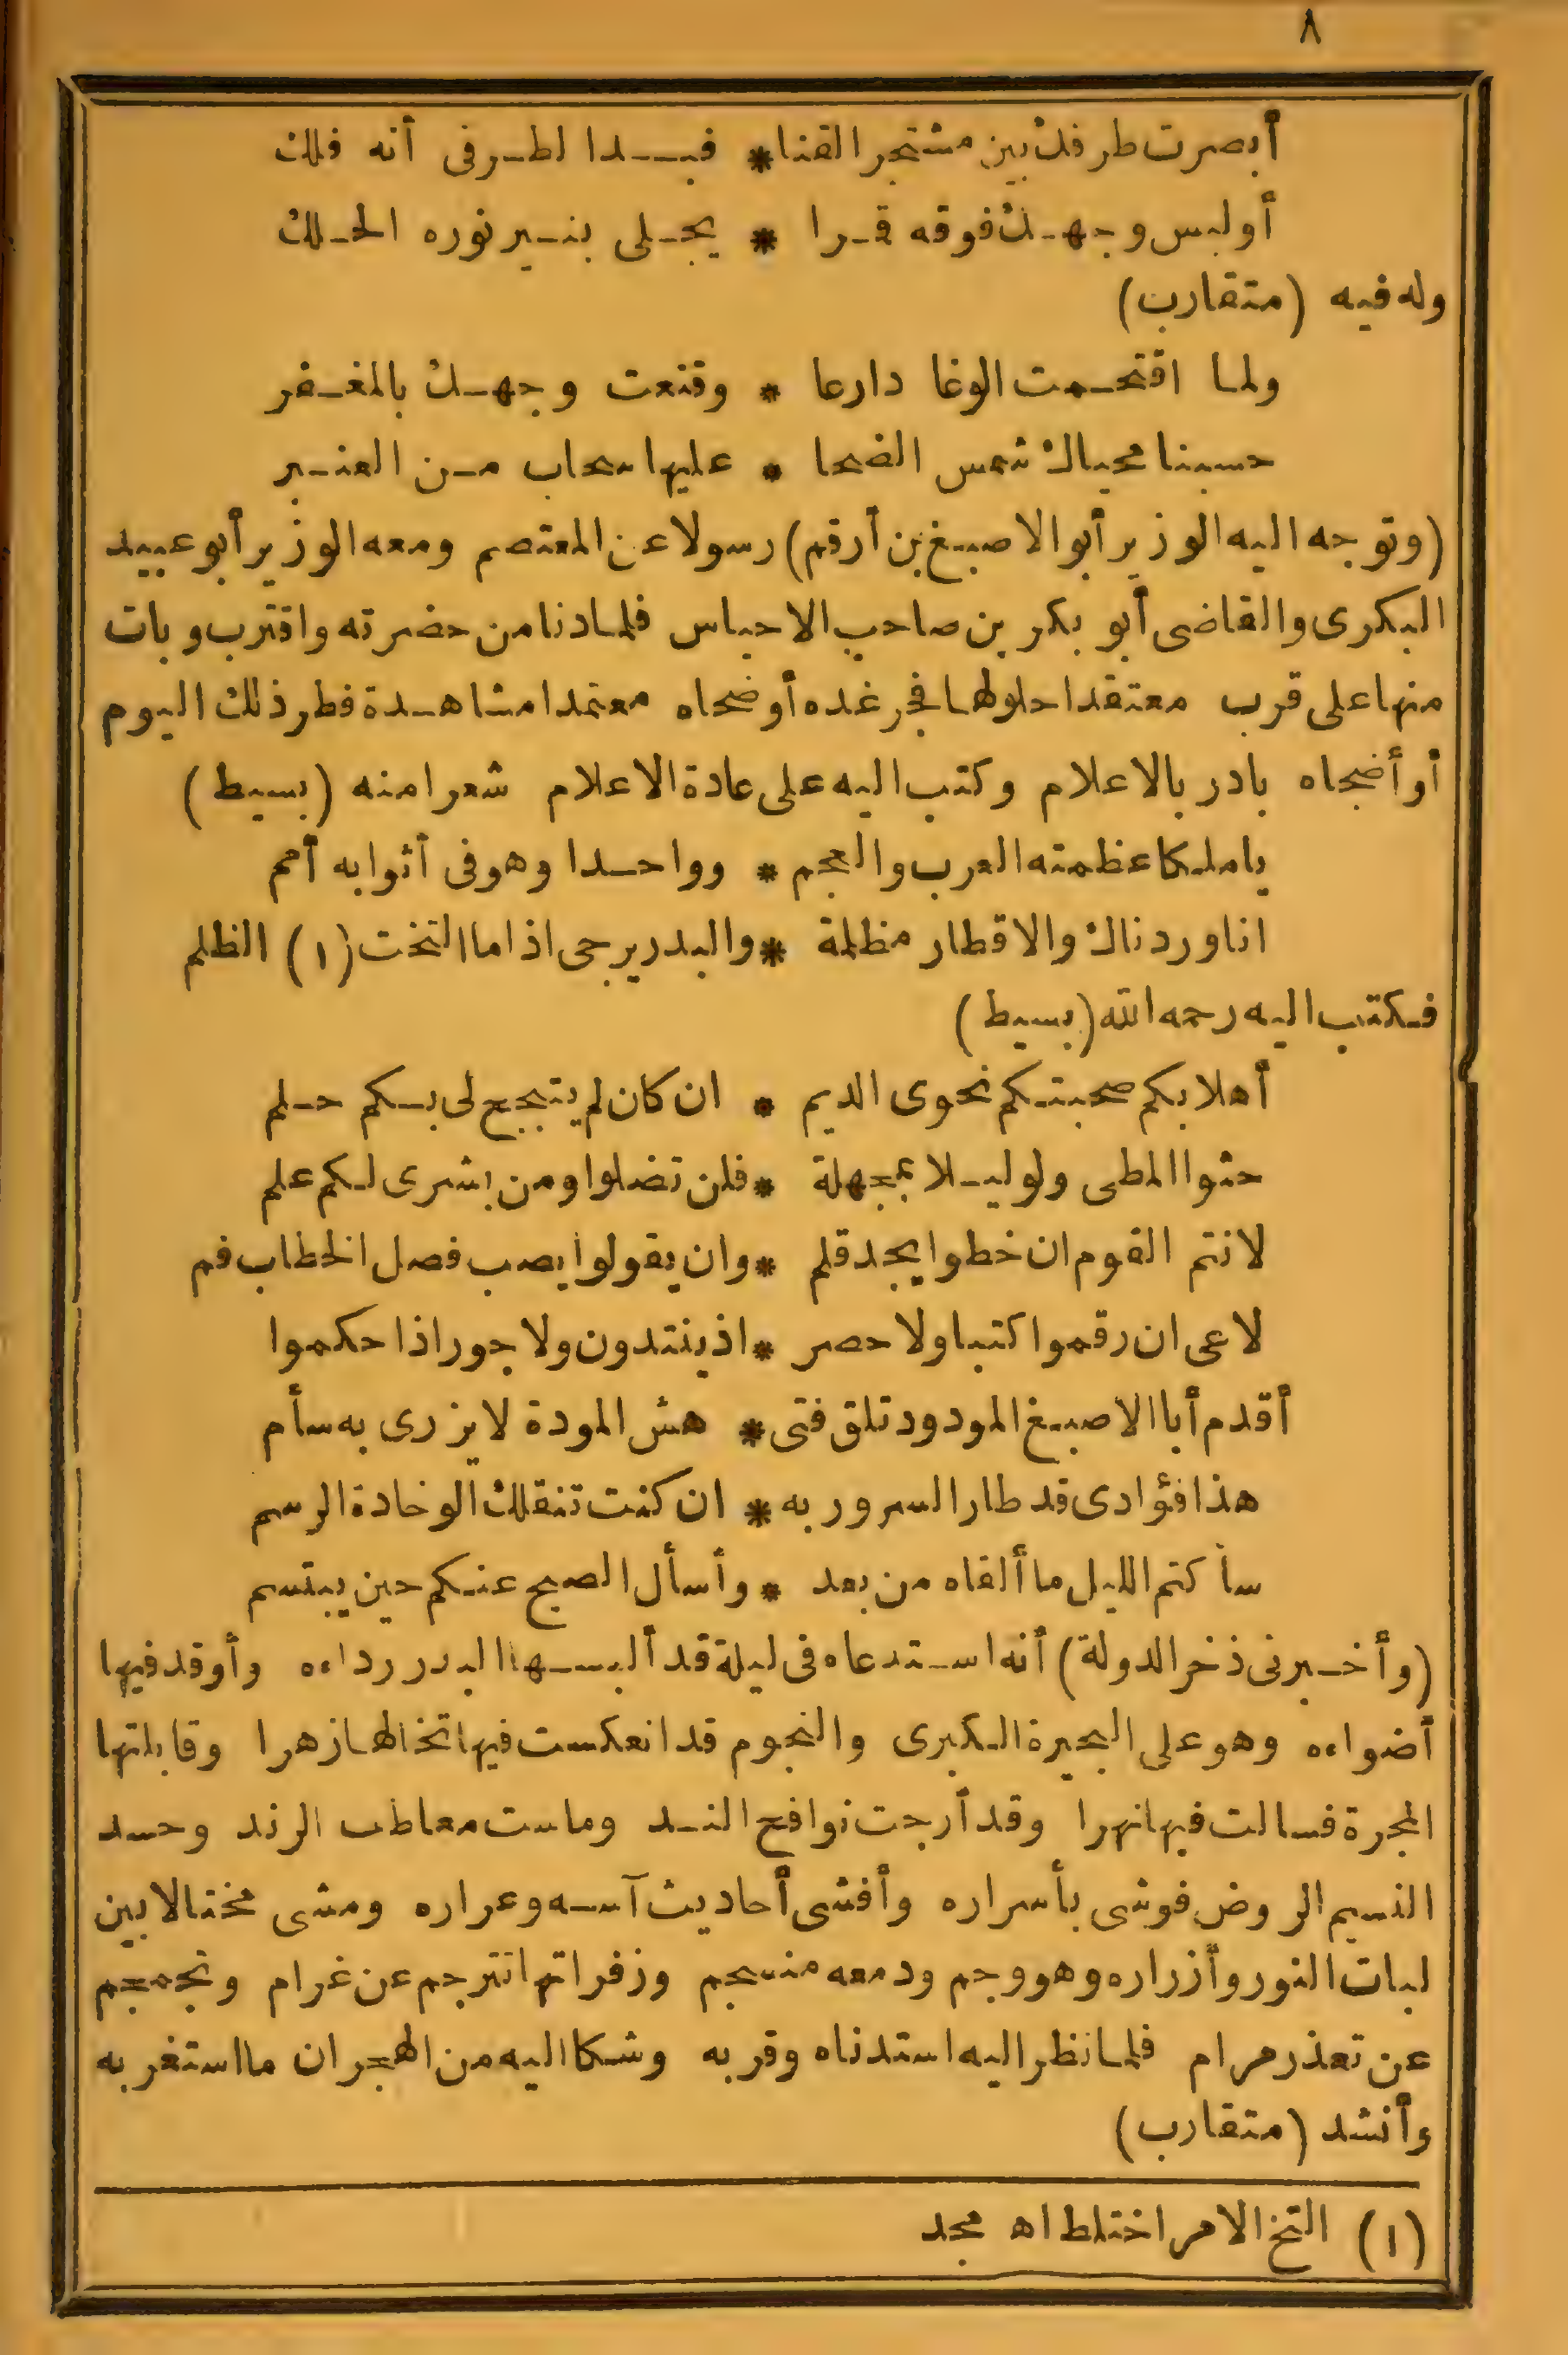 ٨
أبصرت طرفك بين مشتجر القنا * فبـدا لطـرفى أنه فلك
أوليس وجهـك فوقه قـرا * يجـلى بنـير نوره الحـلك
وله فيه (متقارب)
ولما اقتحـمت الوغا دارعا * وقنعت وجهـك بالمغـفر
حسبنا محياك شمس الضحا * عليها سحاب مـن العنـبر
(وتوجه اليه الوزير أبو الاصبغ بن أرقم) رسولا عن المعتصم ومعه الوزير أبو عبيد
البكرى والقاضى أبو بكر بن صاحب الاحباس فلما دنا من حضرته واقترب وبات
منها على قرب معتقدا حلولها فجر غده أو ضحاه معتمدا مشاهـدة فطر ذلك اليوم
أو أضحاه بادر بالاعلام وكتب اليه على عادة الاعلام شعرا منه (بسيط)
يا ملكا عظمته العرب والعجم * وواحـدا وهو فى أثوابه أمم
انا وردناك والاقطار مظلمة * والبدر يرجى اذا ما التخت (١) الظلم
فكتب اليه رحمه الله (بسيط)
أهلا بكم صحبتكم نحوى الديم * ان كان لم يتجح لى بـكم حـلم
حثوا المطى ولو ليـلا بمجهلة * فلن تضلوا ومن بشرى لـكم علم
لانتم القوم ان خطوا يجد قلم * وان يقولوا يصب فصل الخطاب فم
لا عى ان رقموا كتبا ولا حصر * اذ ينتدون ولا جور اذا حكموا
أقدم أبا الاصبـغ المودود تلق فتى * هش المودة لا يزرى به سأم
هذا فؤادى قد طار السرور به * ان كنت تنقلك الوخادة الرسم
سأ كتم الليل ما ألقاه من بعد * وأسأل الصبح عنـكم حين يبتسم
(وأخـبرنى ذخر الدولة) أنه اسـتدعاه فى ليلة قد ألبسـها البدر رداءه وأوقد فيها
أضواءه وهو على البحيرة الكبرى والنجوم قد انعكست فيها تخالها زهرا وقابلتها
المجرة فسالت فيها نهرا وقد أرجت نوافح النـد وماست معاطف الرند وحسد
النسيم الروض فوشى بأسراره وأفشى أحاديث آسـه وعراره ومشى مختالا بين
لبات النور وأزراره وهو وجم ودمعه منسجم وزفراتها تترجم عن غرام وتجمجم
عن تعذر مرام فلما نظر اليه استدناه وقربه وشكا اليه من الهجران ما استغربه
وأنشد (متقارب)
(١) التخ الامر اختلط اه مجد